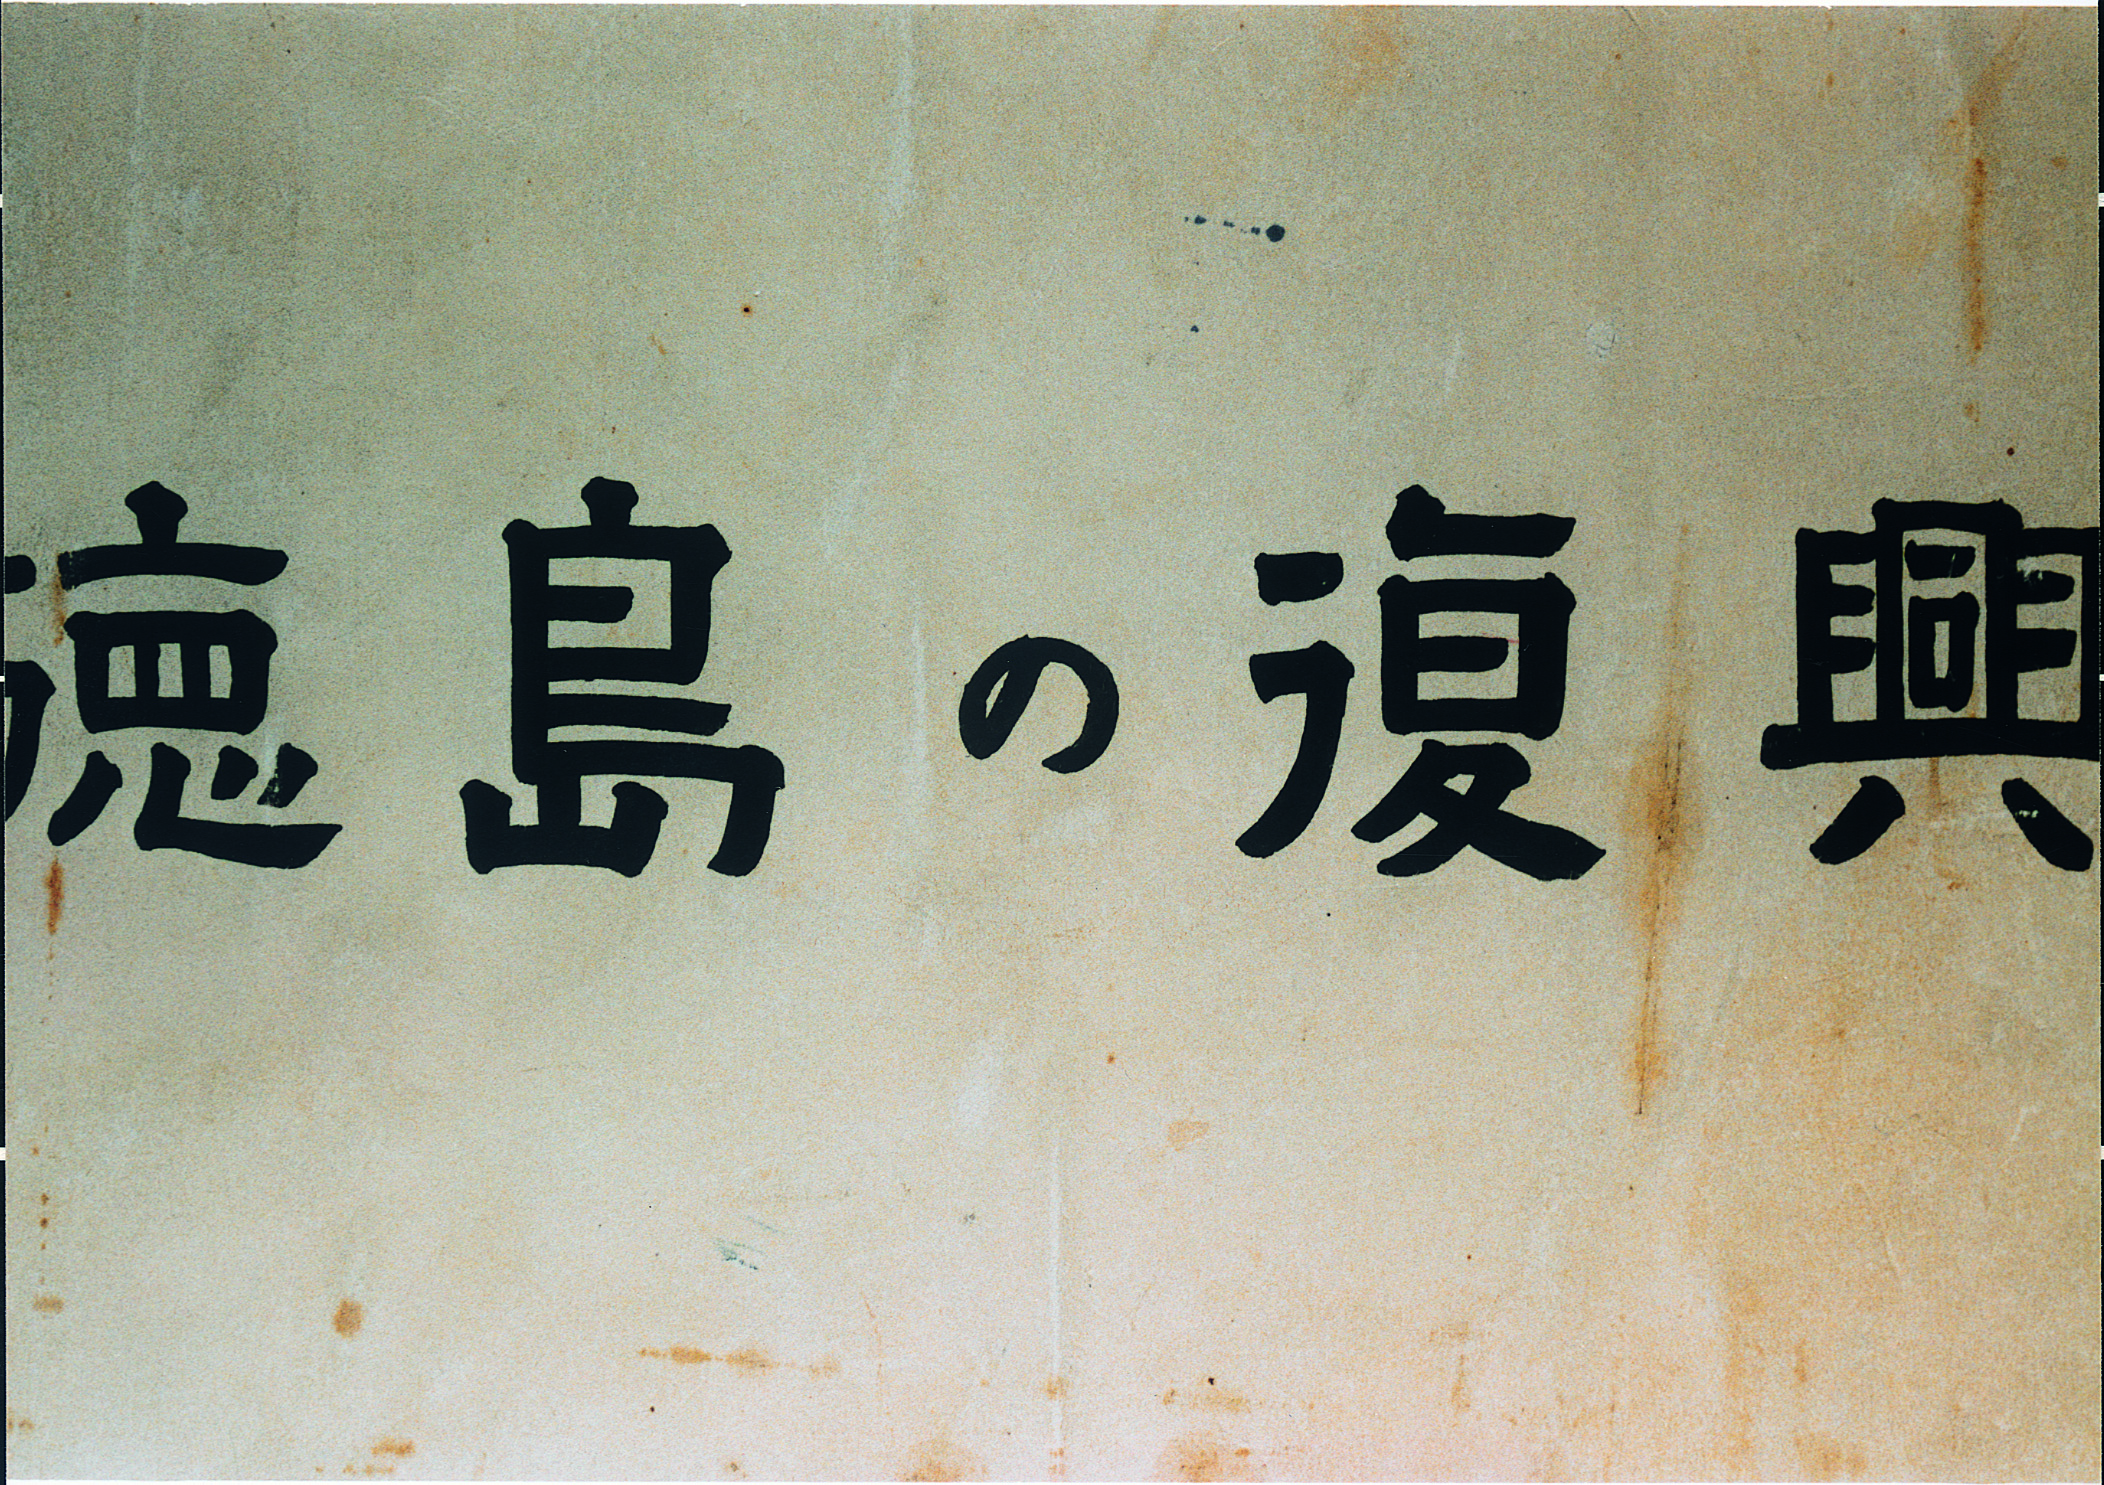 徳島の復興